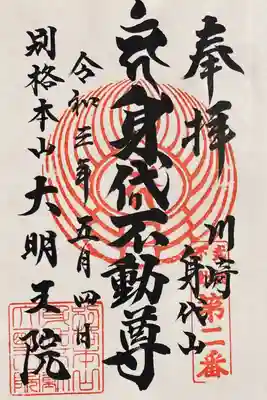 奉拝
川崎
身代山
第二番
身代不動尊
令和元年五月四日
別格本山大明王院